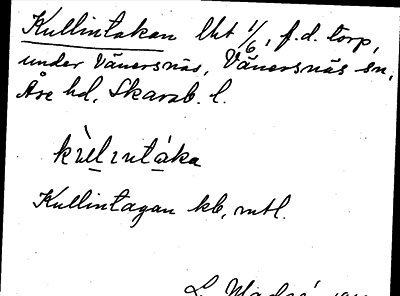 Kullintakan lht 1/6, f.d. torp,
under Vänersnäs, Vänersnäs sn,
Åse hd, Skarab. l.
kùlıntáka
Kullintagan kb, mtl.
L.